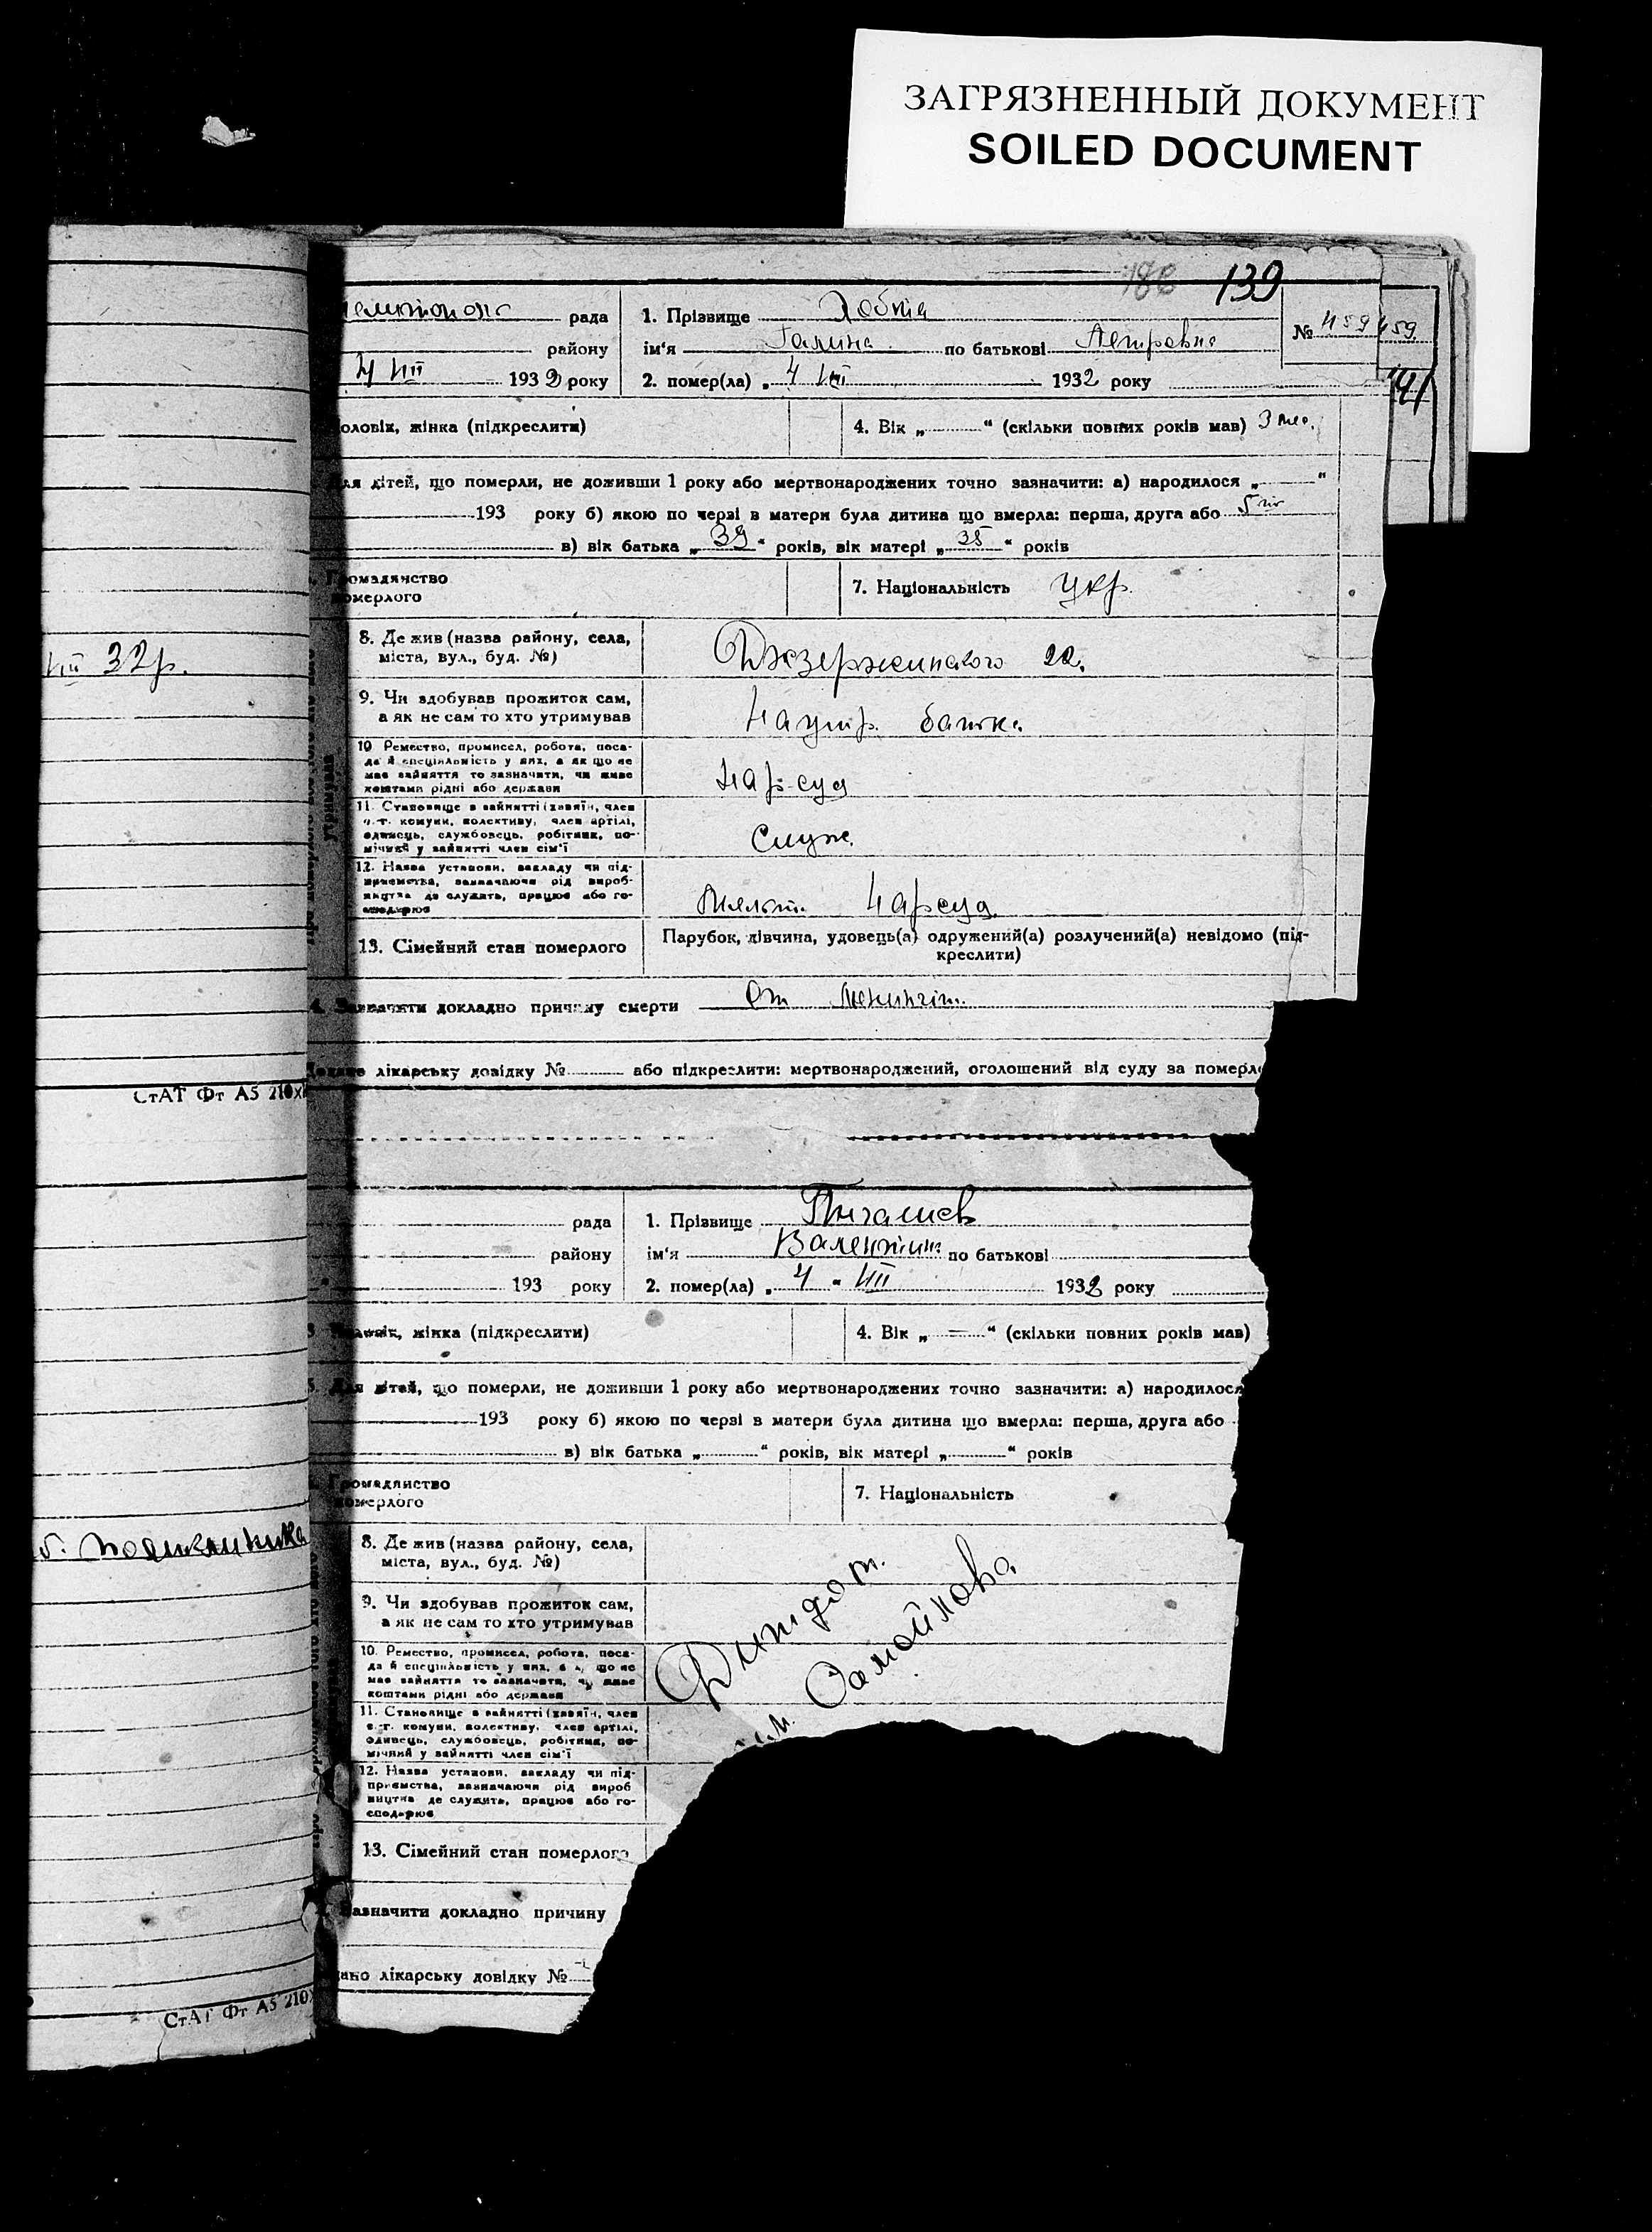 ЗАГРЯЗНЕННЫЙ ДОКУМЕНТ
SOILED DOCUMENT
139
рада
1. Прізвище Хобта
№ 459 459
району
ім'я Галина по батькові Петровна
4 VIII 1932 року
2. помер(ла) „ 4 VIII 1932 року
141
оловік, жінка (підкреслити)
4. Вік „ “ (скільки повних років мав) 3 мес.
для дітей, що померли, не доживши 1 року або мертвонароджених точно зазначити: а) народилося „ “
193 року б) якою по черзі в матери була дитина що вмерла: перша, друга або 5
в) вік батька „39“ років, вік матері „35“ років
Громадянство
померлого
7. Національність укр.
8. Де жив (назва району, села,
міста, вул., буд. №)
Дзержинского 22.
VIII 32р.
9. Чи здобував прожиток сам,
а як не сам то хто утримував
батька
10. Ремество, промисел, робота, поса-
да й спеціяльність у них, а як що не
має зайняття то зазначити, чи живе
коштами рідні або держави
Нар-суд
11. Становище в зайнятті (хазяїн, член
с.-г. комуни, колективу, член артілі,
одинець, службовець, робітник, по-
мічний у зайнятті член сім'ї
Служ.
12. Назва установи, закладу чи під-
приємства, зазначаючи рід вироб-
ництва де служить, працює або го-
сподарює
Мелит. Нарсуд
13. Сімейний стан померлого
Парубок, дівчина, удовець(а) одружений(а) розлучений(а) невідомо (під-
креслити)
Зазначити докладно причину смерти От менингіт.
Додано лікарську довідку № або підкреслити: мертвонароджений, оголошений від суду за померло
СтАТ Фт А5 210х
рада
1. Прізвище
району
ім'я Валентин по батькові
193 року
2. помер(ла) „ 4 “ VIII 1932 року
3. жінка (підкреслити)
4. Вік „ — “ (скільки повних років мав)
5. Для дітей, що померли, не доживши 1 року або мертвонароджених точно зазначити: а) народилося
193 року б) якою по черзі в матери була дитина що вмерла: перша, друга або
в) вік батька „ “ років, вік матері „ “ років
Громадянство
померлого
7. Національність
8. Де жив (назва району, села,
міста, вул., буд. №)
9. Чи здобував прожиток сам,
а як не сам то хто утримував
10. Ремество, промисел, робота, поса-
да й спеціяльність у них, а як що не
має зайняття то зазначити, чи живе
коштами рідні або держави
Дитдом
Самойлова
11. Становище в зайнятті (хазяїн, член
с.-г. комуни, колективу, член артілі,
одинець, службовець, робітник, по-
мічний у зайнятті член сім'ї
12. Назва установи, закладу чи під-
приємства, зазначаючи рід вироб
ництва де служить, працює або го-
сподарює
13. Сімейний стан померлого
Зазначити докладно причину
дано лікарську довідку №
СтАТ Фт А5 210